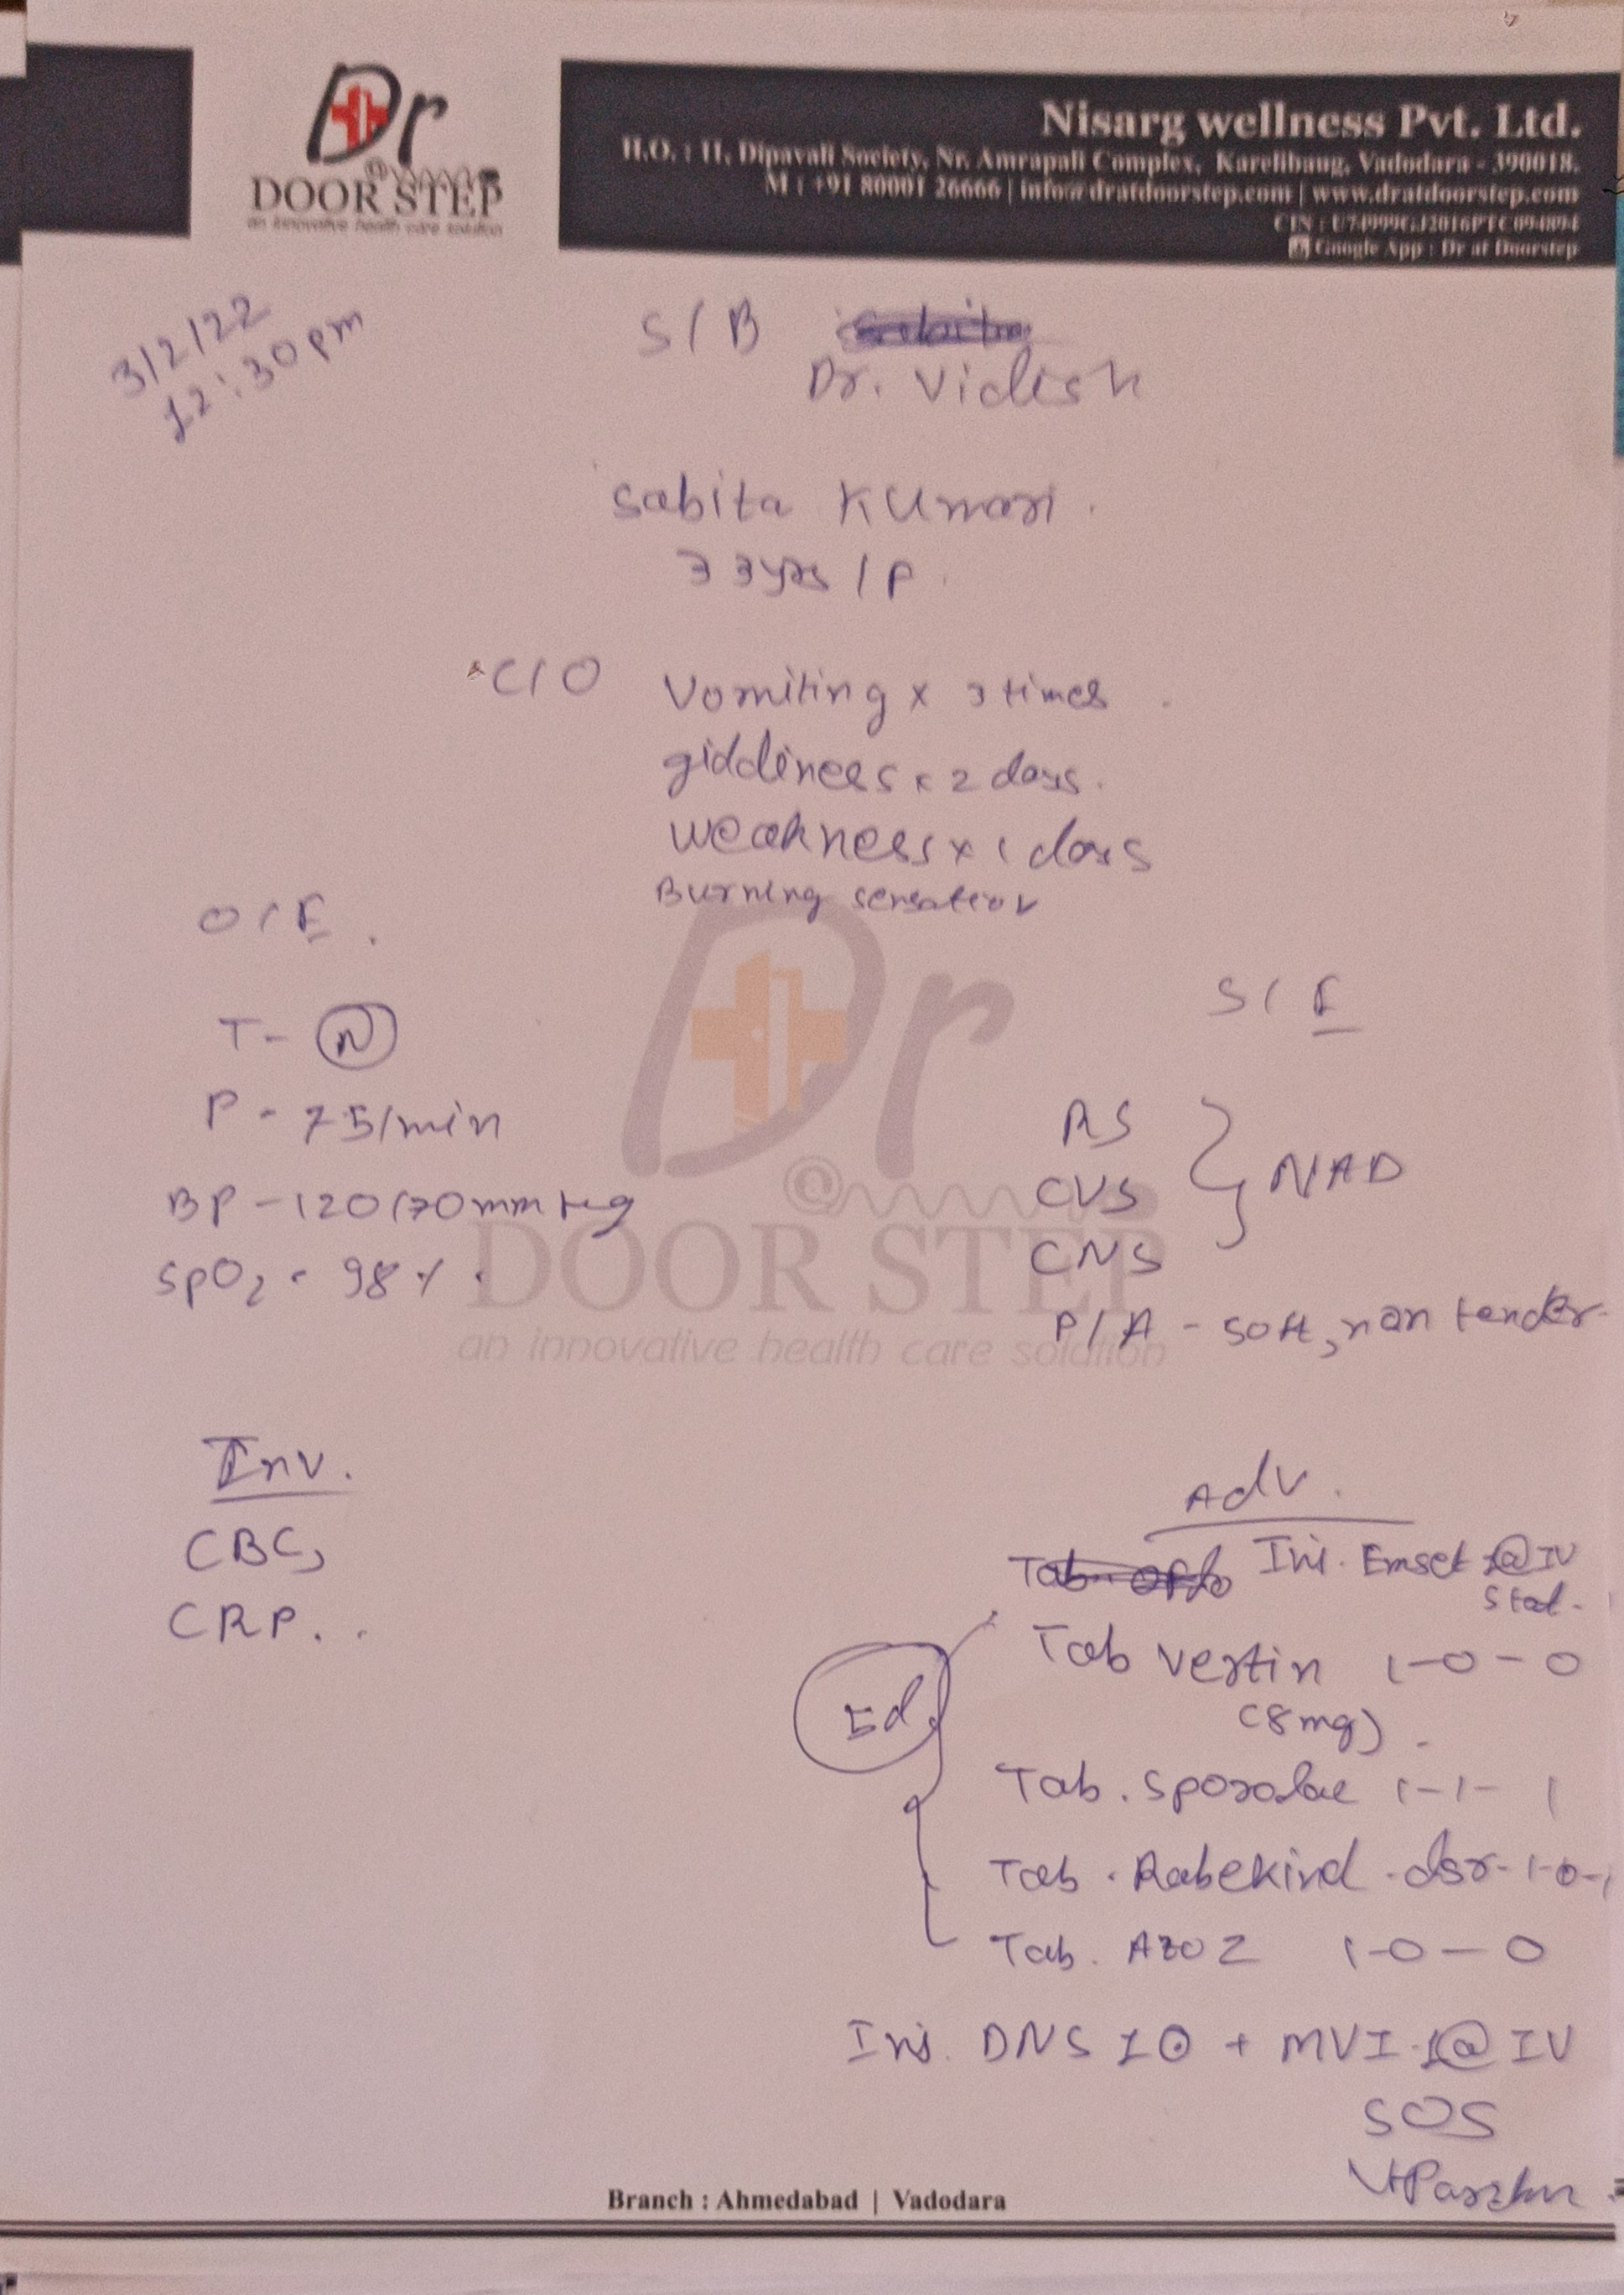 Dr
@
DOOR STEP
an innovative health care solution
Nisarg wellness Pvt. Ltd.
H.O. : 11, Dipavali Society, Nr. Amrapali Complex, Karelibaug, Vadodara - 390018.
M : +91 80001 26666 | info@dratdoorstep.com | www.dratdoorstep.com
CIN : U74999GJ2016PTC094894
Google App : Dr at Doorstep
3/2/22
12:30pm
S/B
Dr. Videsh
Sabita Kumari.
33yrs / F.
C/O Vomiting x 3 times.
giddiness x 2 days.
weakness x 1 days
Burning sensation
O/E.
T- N
P - 75/min
BP - 120/70mmHg
SpO2 - 98%.
S/E
RS
CVS } NAD
CNS
P/A - soft, non tender.
Dr
@
DOOR STEP
an innovative health care solution
Inv.
CBC,
CRP..
Adv.
Inj. Emset 1@ IV
Stat.
Tab Vertin 1-0-0
(8mg).
5d
Tab. Sporolac 1-1-1
Tab. Rabekind-dsr-1-0-1
Tab. AZOZ 1-0-0
Inj. DNS 10 + MVI 1@ IV
SOS
Branch : Ahmedabad | Vadodara